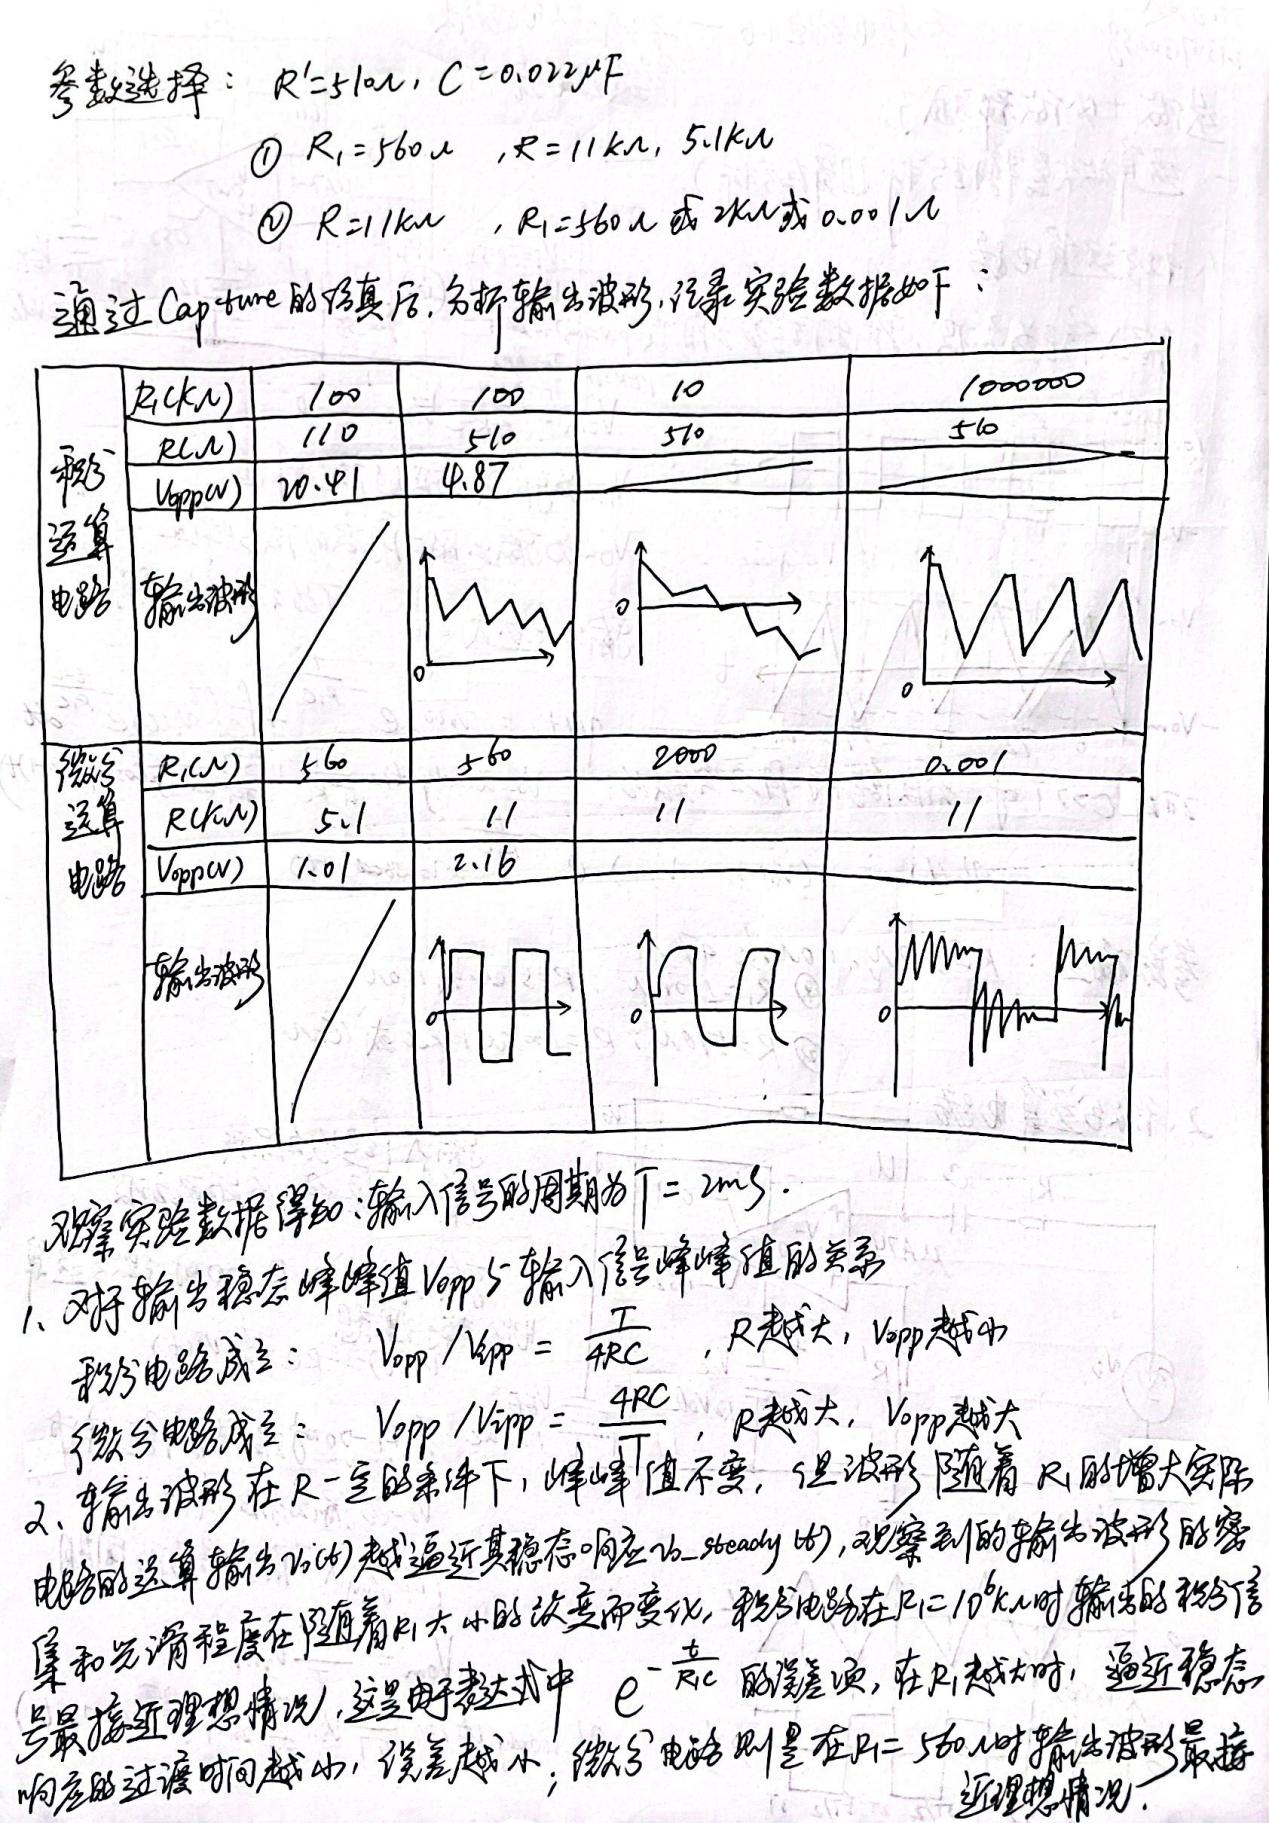 参数选择： R'=510Ω, C=0.022μF
① R₁=560Ω ,R=11KΩ, 5.1KΩ
② R=11KΩ , R₁=560Ω 或 2KΩ 或 0.001Ω
通过 Capture 的仿真后,分析输出波形,记录实验数据如下：
积分运算电路
R₁(KΩ) 100 100 10 1000000
R(Ω) 110 510 510 510
Vopp(V) 20.41 4.87
输出波形
0 0 0
微分运算电路
R₁(Ω) 560 560 2000 0.001
R(KΩ) 5.1 11 11 11
Vopp(V) 1.01 2.16
输出波形
0 0 0
观察实验数据得知:输入信号的周期为 T = 2ms.
1、对于输出稳态峰峰值 Vopp 与输入信号峰峰值的关系
积分电路成立: Vopp/Vipp = T/4RC , R越大, Vopp越小
微分电路成立: Vopp/Vipp = 4RC/T , R越大, Vopp越大
2、输出波形在R一定的条件下,峰峰值不变,但波形随着R₁的增大实际
电路的运算输出vo(t)越逼近其稳态响应vo_steady(t),观察到的输出波形的密
集和光滑程度在随着R₁大小的改变而变化,积分电路在R₁=10⁶KΩ时输出的积分信
号最接近理想情况,这是由于表达式中 e^(-t/R₁C) 的误差项,在R₁越大时,逼近稳态
响应的过渡时间越小,误差越小;微分电路则是在R₁=560Ω时输出波形最接
近理想情况.